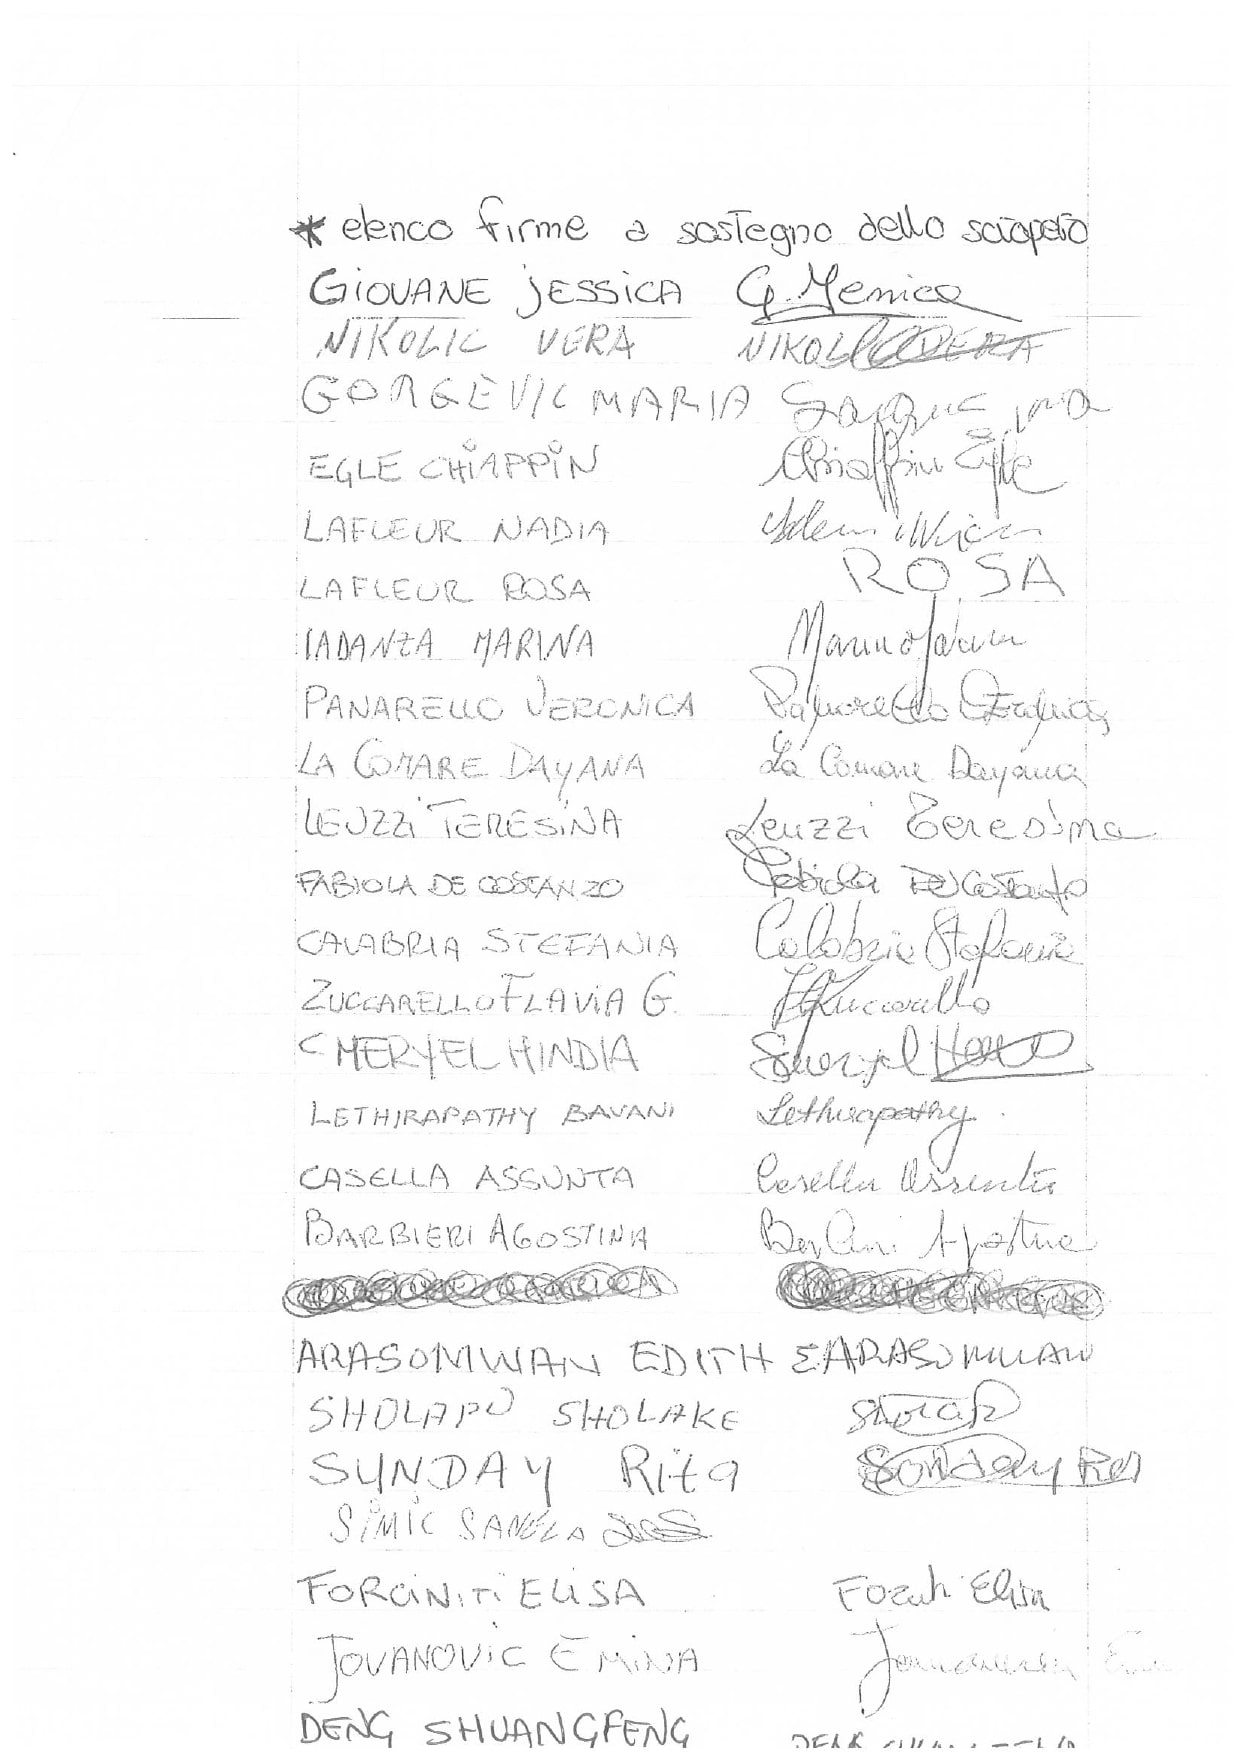 * elenco firme a sostegno dello sciopero
GIOVANE JESSICA G.
NIKOLIC VERA NIKOL
GORGEVIC MARIA
EGLE CHIAPPIN Chiappin Egle
LAFLEUR NADIA
LAFLEUR ROSA ROSA
IADANZA MARINA Marina
PANARELLO VERONICA Panarello Veronica
LA COMARE DAYANA La Comare Dayana
LEUZZI TERESINA Leuzzi Teresina
FABIOLA DE COSTANZO Fabiola De Costanzo
CALABRIA STEFANIA Calabria Stefania
ZUCCARELLO FLAVIA G. Zuccarello
CHERYEL HINDIA
LETHIRAPATHY BAVANI Lethirapathy
CASELLA ASSUNTA Casella Assunta
BARBIERI AGOSTINA Barbieri Agostina
ARASOMWAN EDITH E ARASOMWAN
SHOLAPO SHOLAKE
SUNDAY Rita Sonday
SIMIC SANELA
FORCINITI ELISA Elisa
JOVANOVIC EMINA
DENG SHUANGFENG